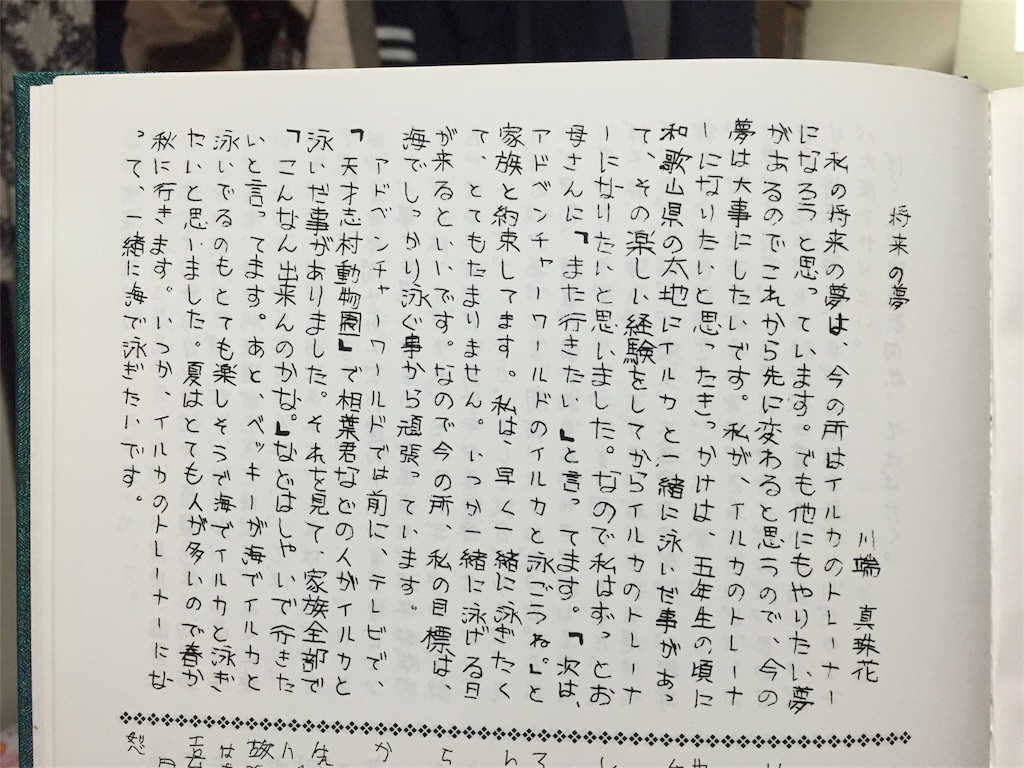 将来の夢
川端 真珠花
私の将来の夢は、今の所はイルカのトレーナー
になろうと思っています。でも他にもやりたい夢
があるのでこれから先に変わると思うので、今の
夢は大事にしたいです。私が、イルカのトレーナ
ーになりたいと思ったきっかけは、五年生の頃に
和歌山県の太地にイルカと一緒に泳いだ事があっ
て、その楽しい経験をしてからイルカのトレーナ
ーになりたいと思いました。なので私はずっとお
母さんに「また行きたい。」と言ってます。「次は、
アドベンチャーワールドのイルカと泳ごうね。」と
家族と約束してます。私は、早く一緒に泳ぎたく
て、とてもたまりません。いつか一緒に泳げる日
が来るといいです。なので今の所、私の目標は、
海でしっかり泳ぐ事から頑張っています。
アドベンチャーワールドでは前に、テレビで、
「天才志村動物園」で相葉君などの人がイルカと
泳いだ事がありました。それを見て、家族全部で
「こんなん出来んのかな。」などはしゃいで行きた
いと言ってます。あと、ベッキーが海でイルカと
泳いでるのもとても楽しそうで海でイルカと泳ぎ
たいと思いました。夏はとても人が多いので春か
秋に行きます。いつか、イルカのトレーナーにな
って、一緒に海で泳ぎたいです。